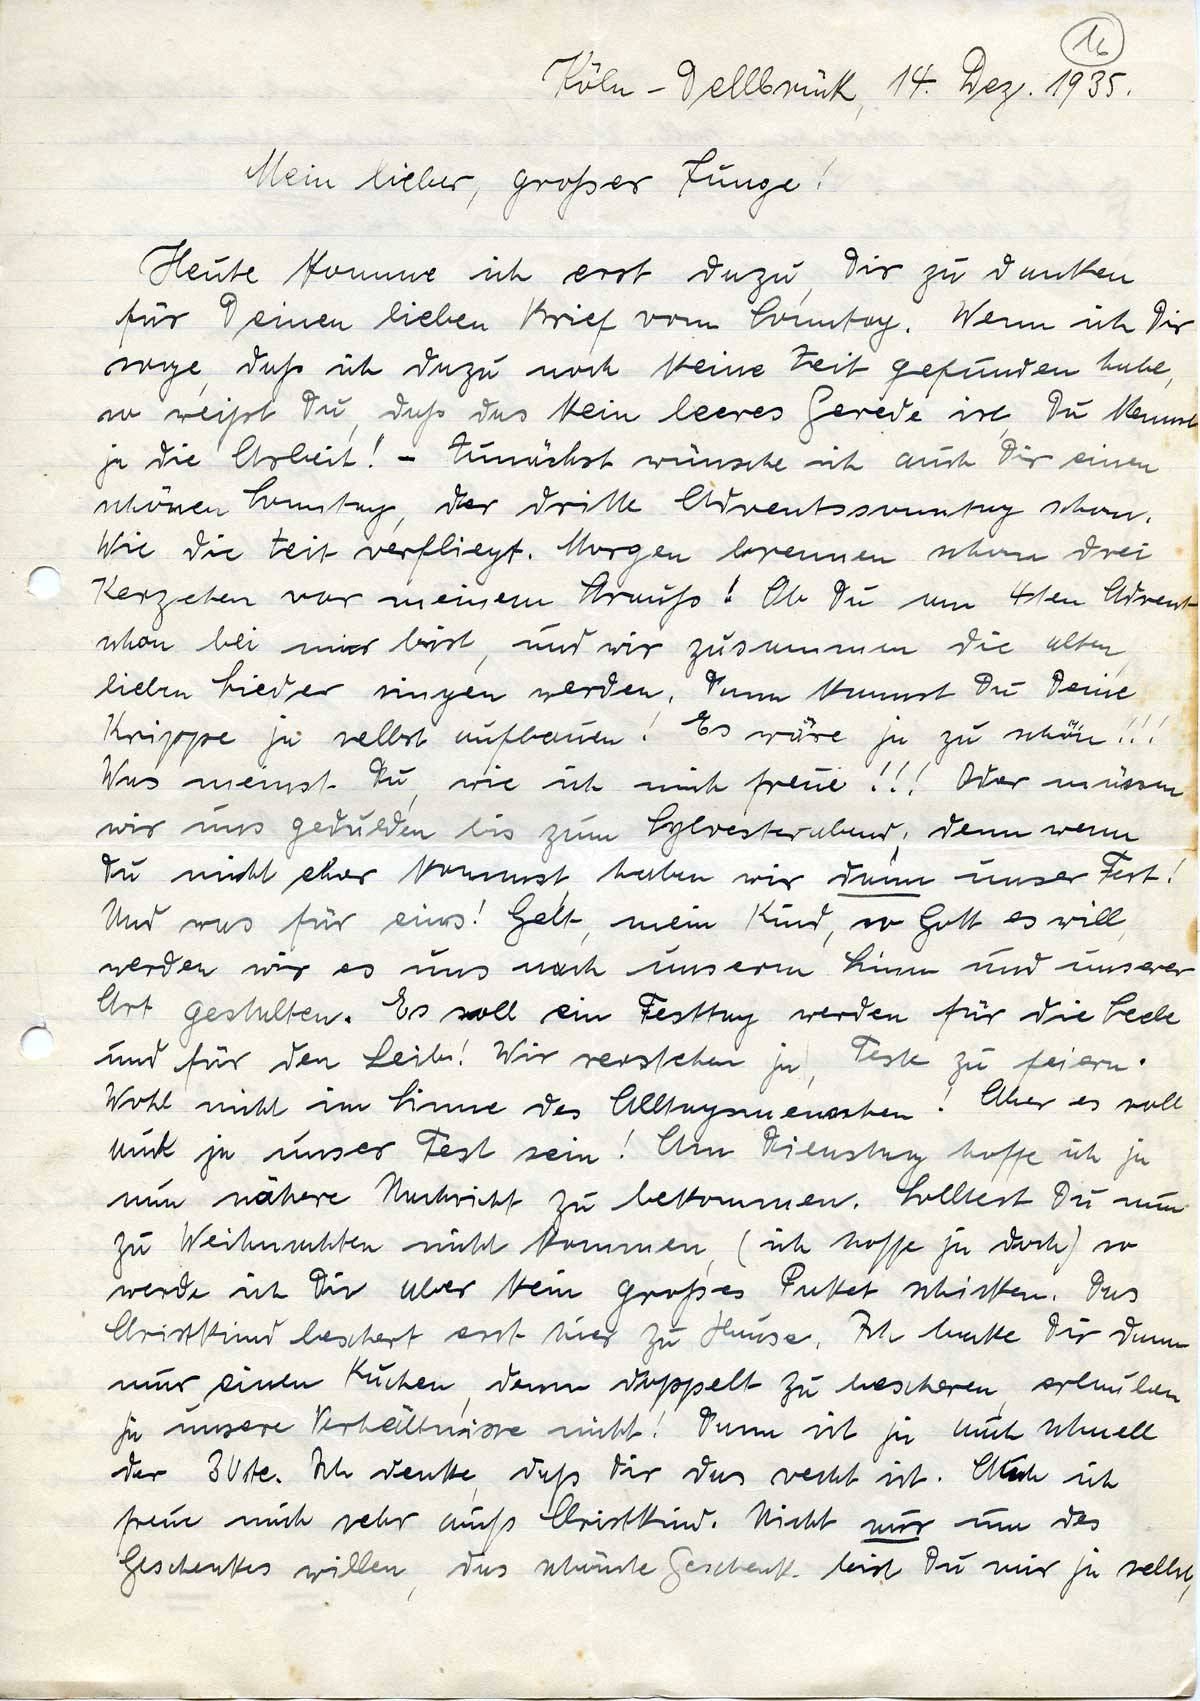 16
Köln-Dellbrück, 14. Dez. 1935.
Mein lieber, großer Junge!
Heute komme ich erst dazu, Dir zu danken
für Deinen lieben Brief vom Sonntag. Wenn ich Dir
sage, daß ich dazu noch keine Zeit gefunden habe,
so weißt Du, daß das kein leeres Gerede ist, Du kennst
ja die Arbeit! – Zunächst wünsche ich auch Dir einen
schönen Sonntag, der dritte Adventssonntag schon.
Wie die Zeit verfliegt. Morgen brennen schon drei
Kerzchen vor meinem Strauß! Ob Du am 4ten Advent
schon bei mir bist, und wir zusammen die alten,
lieben Lieder singen werden. Dann kannst Du Deine
Krippe ja selbst aufbauen! Es wäre ja zu schön!!!
Was meinst Du, wie ich mich freue!!! Oder müssen
wir uns gedulden bis zum Sylvesterabend, denn wenn
Du nicht eher kommst, haben wir dann unser Fest!
Und was für eins! Gelt, mein Kind, so Gott es will,
werden wir es uns nach unserm Sinn und unserer
Art gestalten. Es soll ein Festtag werden für die Seele
und für den Leib! Wir verstehen ja, Feste zu feiern.
Wohl nicht im Sinne des Alltagsmenschen! Aber es soll
auch ja unser Fest sein! Am Dienstag hoffe ich ja
nun nähere Nachricht zu bekommen. Solltest Du nun
zu Weihnachten nicht kommen, (ich hoffe ja doch) so
werde ich Dir aber kein großes Paket schicken. Das
Christkind beschert erst hier zu Hause. Ich backe Dir dann
nur einen Kuchen, denn doppelt zu bescheren, erlauben
ja unsere Verhältnisse nicht! Dann ist ja auch schnell
der 30ste. Ich denke, daß Dir das recht ist. Auch ich
freue mich sehr aufs Christkind. Nicht nur um des
Geschenkes willen, das schönste Geschenk bist Du mir ja selbst,